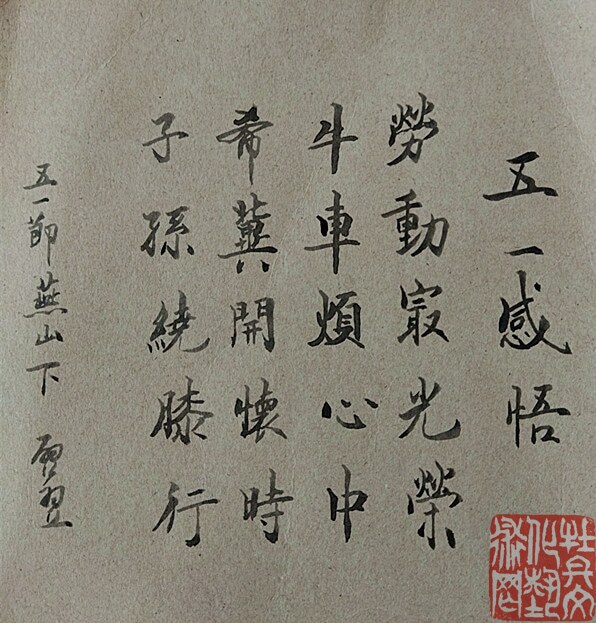 五一感悟
勞動最光榮
牛車煩心中
希冀開懷時
子孫繞膝行
五一節燕山下